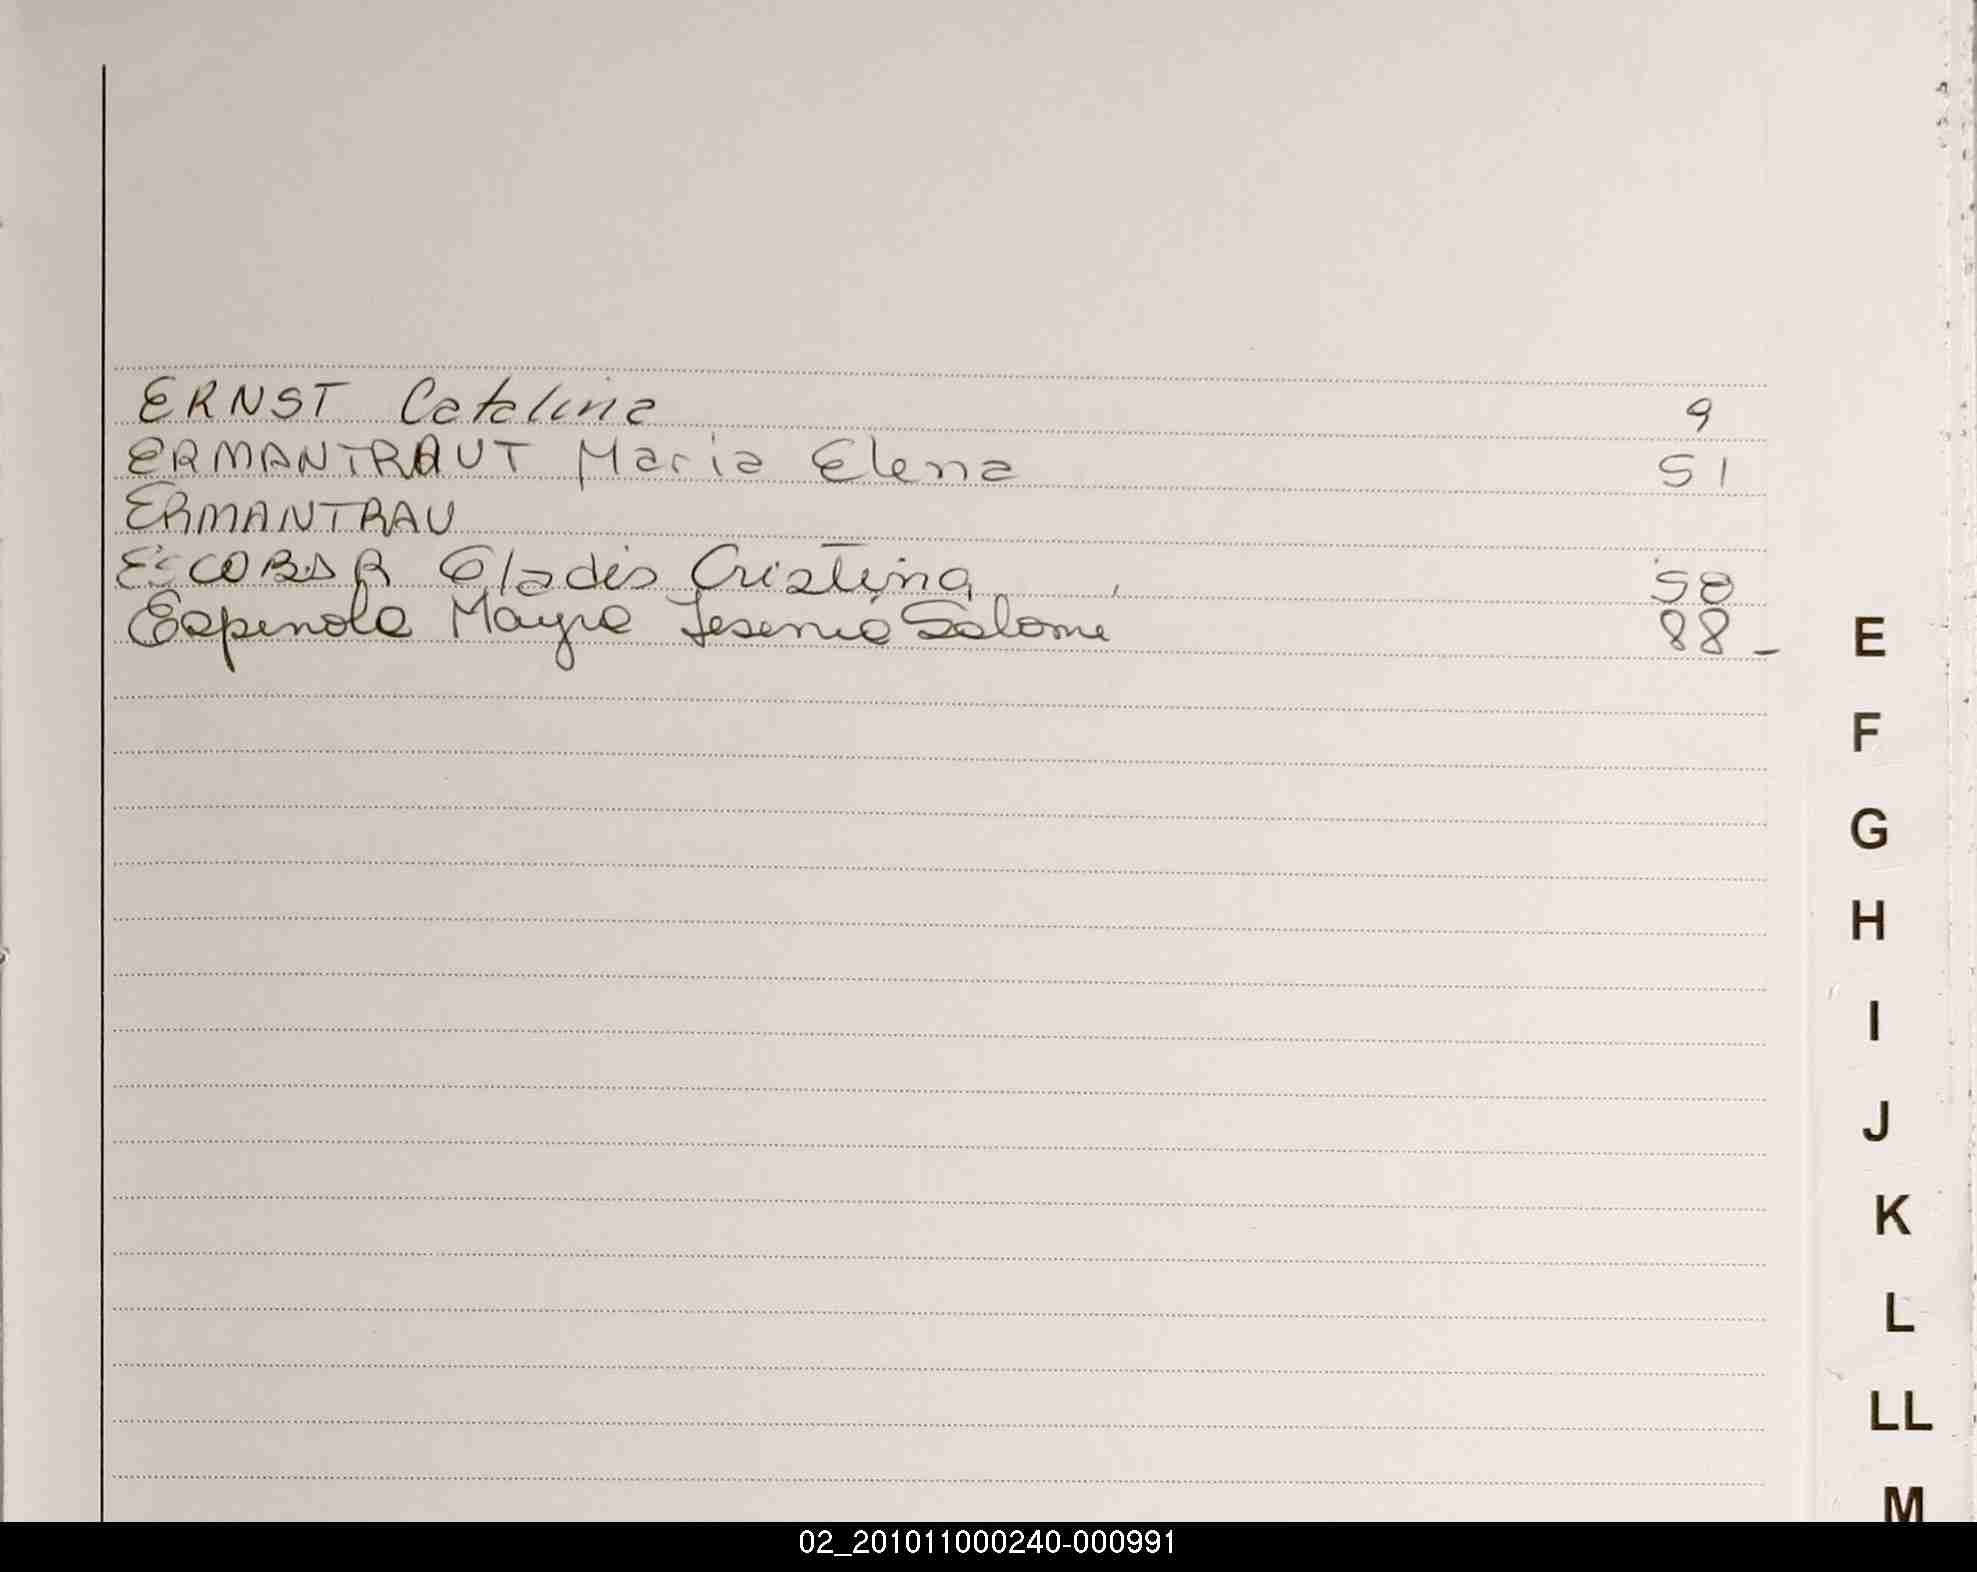 ERNST Catalina 9
ERMANTRAUT Maria Elena 51
ERMANTRAU
ESCOBAR Gladis Cristina 58
Espinola Mayra Jesenia Salome 88 -
E
F
G
H
I
J
K
L
LL
M
02_201011000240-000991